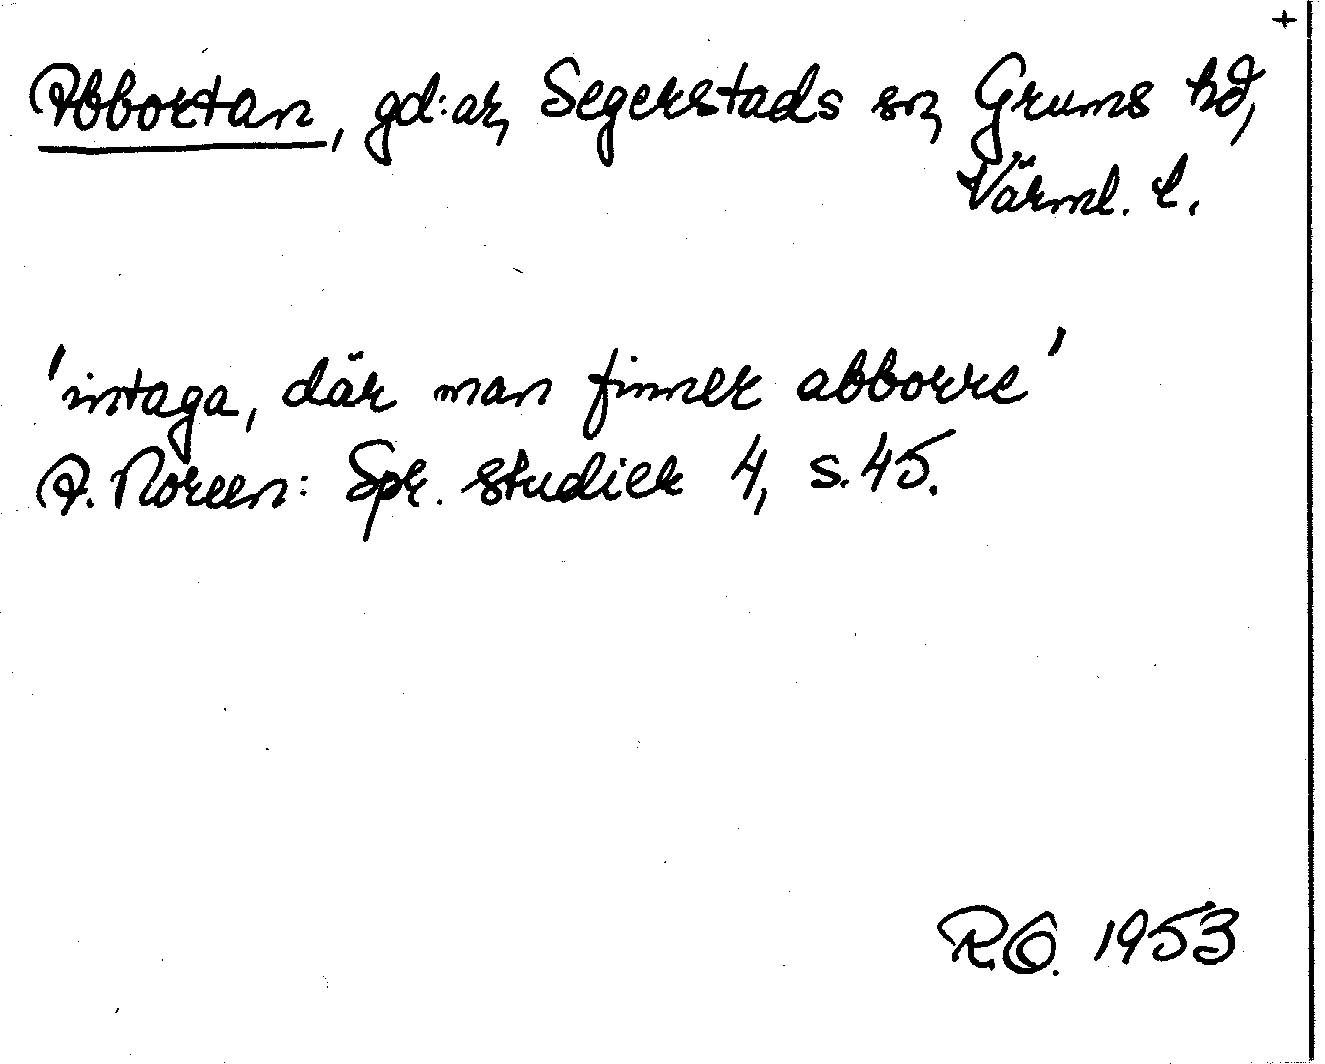 +
Abbortan, gd:ar, Segerstads sn, Grums hd,
Värml. l.
'intaga, där man finner abborre'
A. Noreen: Spr. studier 4, s. 45.
R.O. 1953